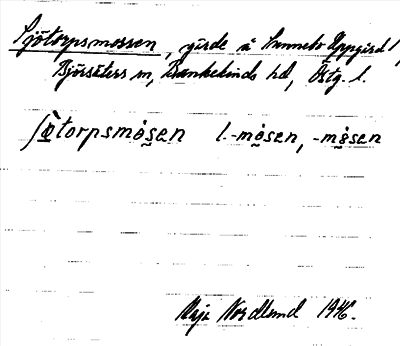 Sjötorpsmossen, gärde å Sunneba Uppgård,
Björsäters sn, Bankekinds hd, Östg. l.
ʃö̀torpsmo̊sen l. -mo̊sen, -mo̊sen
Maja Nordlund 1946.